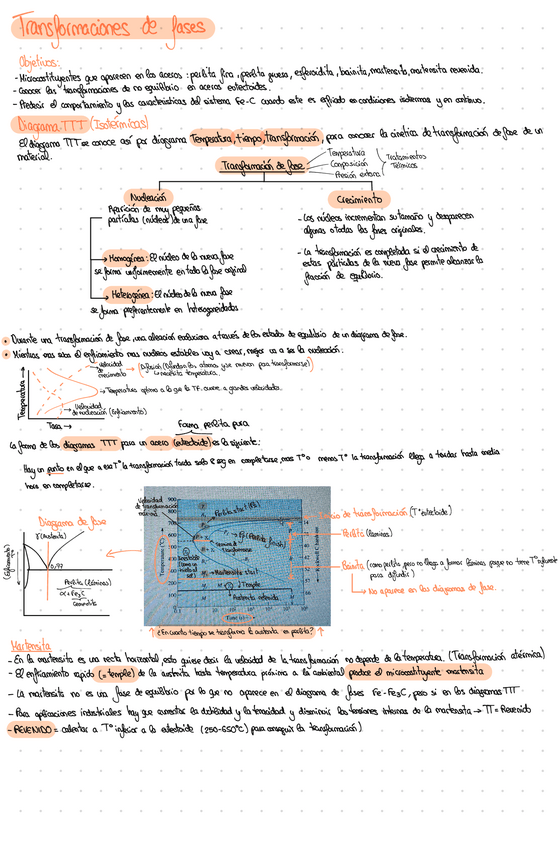 Transformaciones de fases
Objetivos:
- Microconstituyentes que aparecen en los aceros: perlita fina, perlita gruesa, esferoidita, bainita, martensita, martensita revenida.
- Conocer las transformaciones de no equilibrio en aceros eutectoides.
- Predecir el comportamiento y las características del sistema Fe-C cuando este es enfriado en condiciones isotermas y en continuo.
Diagrama TTT (Isotérmicas)
El diagrama TTT se conoce así por diagrama Temperatura, tiempo, transformación, para conocer la cinética de transformación de fase de un
material.
Transformación de fase
Temperatura
Composición
Presión externa
Tratamientos
Térmicos
Nucleación
Aparición de muy pequeñas
partículas (núcleos) de una fase
Homogénea: El núcleo de la nueva fase
se forma uniformemente en toda la fase original
Heterogénea: El núcleo de la nueva fase
se forma preferentemente en heterogeneidades
Crecimiento
- Los núcleos incrementan su tamaño y desaparecen
algunas o todas las fases originales.
- La transformación es completada si el crecimiento de
estas partículas de la nueva fase permite alcanzar la
fracción de equilibrio.
Durante una transformación de fase, una aleación evoluciona a través de los estados de equilibrio de un diagrama de fase.
Mientras mas suba el enfriamiento mas nucleos estables voy a crear, mejor va a ser la nucleación.
Temperatura
Tasa
velocidad
de crecimiento
necesita temperatura
Temperatura óptima a la que la TF. ocurre a grandes velocidades.
Velocidad
de nucleación (Enfriamiento)
Forma perlita pura
La forma de los diagramas TTT para un acero (eutectoide) es la siguiente:
Hay un punto en el que a esa Tª la transformación tarda solo 8 seg en completarse, mas Tª o menos Tª la transformación llega a tardar hasta media
hora en completarse.
Diagrama de fase
γ (Austenita)
(Enfriamiento)
0,77
Perlita (láminas)
α + Fe3C
Cementita
Velocidad
de transformación
Temperatura (°C)
900
800
700
600
500
400
300
200
100
Temple
Austenita retenida
Inicio de transformación (Tª eutectoide)
Perlita (láminas)
Bainita (como perlita, pero no llega a formar láminas porque no tiene Tª suficiente
para difundir)
No aparece en los diagramas de fase.
¿En cuanto tiempo se transforma la austenita en perlita?
Martensita
- En la martensita es una recta horizontal, esto quiere decir la velocidad de la transformación no depende de la temperatura. (Transformación atérmica)
- El enfriamiento rápido (= temple) de la austenita hasta temperatura próxima a la ambiental produce el microconstituyente martensita
- LA martensita no es una fase de equilibrio por lo que no aparece en el diagrama de fases Fe-Fe3C, pero si en los diagramas TTT
- Para aplicaciones industriales hay que aumentar la ductilidad y la tenacidad y disminuir las tensiones internas de la martensita → TT = Revenido
- REVENIDO = calentar a Tª inferior a la eutectoide (250-650ºC) para conseguir la transformación)